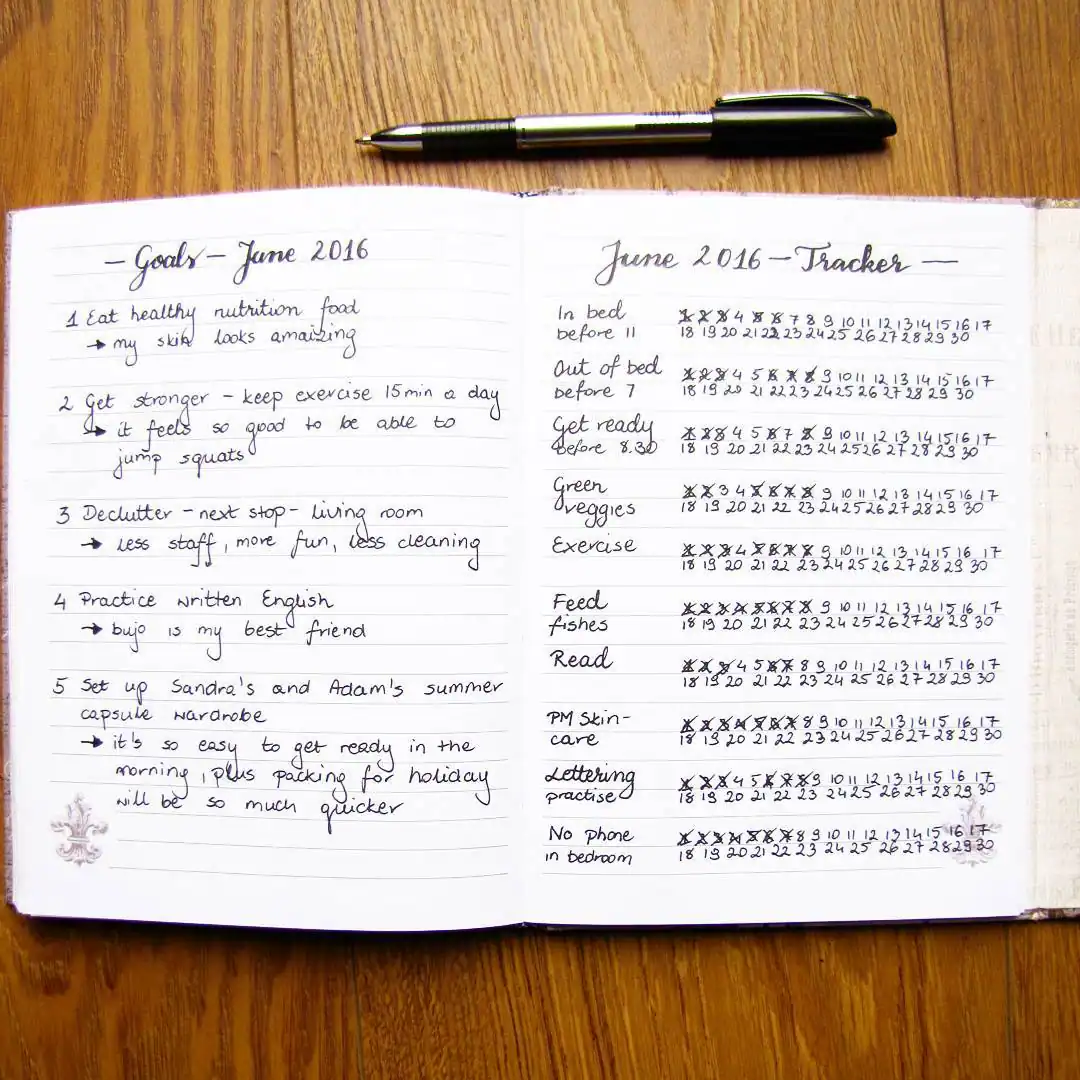 — Goals — June 2016
1 Eat healthy nutrition food
→ my skin looks amaizing
2 Get stronger - keep exercise 15 min a day
→ it feels so good to be able to
jump squats
3 Declutter - next stop - living room
→ less staff, more fun, less cleaning
4 Practice written English
→ bujo is my best friend
5 Set up Sandra's and Adam's summer
capsule wardrobe
→ it's so easy to get ready in the
morning, plus packing for holiday
will be so much quicker
June 2016 — Tracker —
In bed 1 2 3 4 5 6 7 8 9 10 11 12 13 14 15 16 17
before 11 18 19 20 21 22 23 24 25 26 27 28 29 30
Out of bed 1 2 3 4 5 6 7 8 9 10 11 12 13 14 15 16 17
before 7 18 19 20 21 22 23 24 25 26 27 28 29 30
Get ready 1 2 3 4 5 6 7 8 9 10 11 12 13 14 15 16 17
before 8.30 18 19 20 21 22 23 24 25 26 27 28 29 30
Green 1 2 3 4 5 6 7 8 9 10 11 12 13 14 15 16 17
veggies 18 19 20 21 22 23 24 25 26 27 28 29 30
Exercise 1 2 3 4 5 6 7 8 9 10 11 12 13 14 15 16 17
18 19 20 21 22 23 24 25 26 27 28 29 30
Feed 1 2 3 4 5 6 7 8 9 10 11 12 13 14 15 16 17
fishes 18 19 20 21 22 23 24 25 26 27 28 29 30
Read 1 2 3 4 5 6 7 8 9 10 11 12 13 14 15 16 17
18 19 20 21 22 23 24 25 26 27 28 29 30
PM Skin- 1 2 3 4 5 6 7 8 9 10 11 12 13 14 15 16 17
care 18 19 20 21 22 23 24 25 26 27 28 29 30
Lettering 1 2 3 4 5 6 7 8 9 10 11 12 13 14 15 16 17
practise 18 19 20 21 22 23 24 25 26 27 28 29 30
No phone 1 2 3 4 5 6 7 8 9 10 11 12 13 14 15 16 17
in bedroom 18 19 20 21 22 23 24 25 26 27 28 29 30